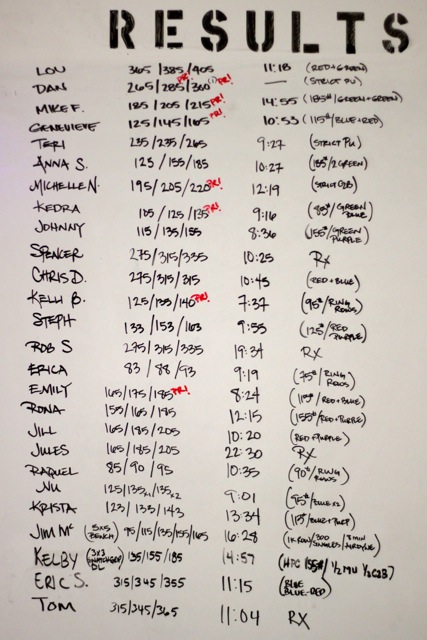 RESULTS
LOU 365/385/405 11:18 (RED+GREEN)
DAN 265/285/300 PR! PR! — (STRICT PU)
MIKE F. 185/205/215 PR! 14:55 (185#/GREEN+GREEN)
GENEVIEVE 125/145/165 PR! 10:53 (115#/BLUE+RED)
TERI 235/235/265 9:27 (STRICT PU)
ANNA S. 125/155/185 10:27 (155#/2GREEN)
MICHELLE N. 195/205/220 PR! 12:19 (STRICT C2B)
KEDRA 105/125/135 PR! 9:16 (85#/GREEN BLUE)
JOHNNY 115/135/155 8:36 (155#/GREEN PURPLE)
SPENCER 275/315/335 10:25 RX
CHRIS D. 275/315/315 10:45 (RED+BLUE)
KELLI B. 125/135/140 PR! 7:37 (95#/RING ROWS)
STEPH 133/153/163 9:55 (125#/RED PURPLE)
ROB S 275/315/335 19:34 RX
ERICA 83/88/93 9:19 (75#/RING ROWS)
EMILY 165/175/185 PR! 8:24 (115#/RED+BLUE)
RONA 155/165/185 12:15 (155#/RED+PURPLE)
JILL 165/185/205 10:20 (RED+PURPLE)
JULES 165/185/205 22:30 RX
RAQUEL 85/90/95 10:35 (90#/RING ROWS)
NU 125/135x1/135x2 9:01 (95#/BLUE x2)
KRISTA 123/133/143 13:34 (115#/BLUE+PURP)
JIM Mc (5x5 BENCH) 95/115/135/155/165 16:28 (1K ROW/300 SINGLES/8 MIN AIRDYNE)
KELBY (3x3 DL) 135/155/185 14:57 (HPC 155#/ 1/2 MU 1/2 C2B)
ERIC S. 315/345/355 11:15 (BLUE BLUE-RED)
TOM 315/345/365 11:04 RX